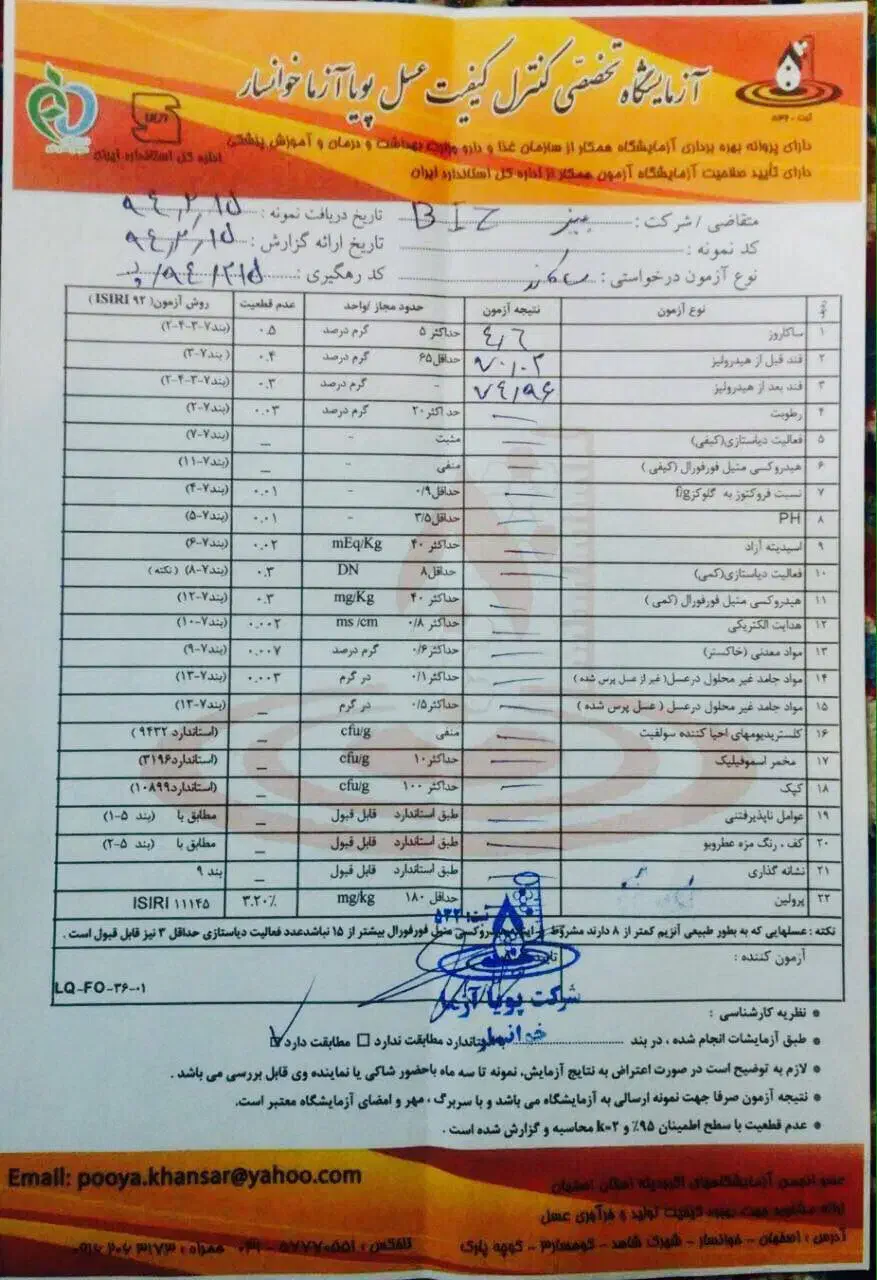 آزمایشگاه تخصصی کنترل کیفیت عسل پویا آزما خوانسار
ثبت ۵۳۶۰
دارای پروانه بهره برداری آزمایشگاه همکار از سازمان غذا و دارو وزارت بهداشت و درمان و آموزش پزشکی
اداره کل استاندارد ایران
دارای تأیید صلاحیت آزمایشگاه آزمون همکار از اداره کل استاندارد ایران
متقاضی / شرکت : بیز BIZ تاریخ دریافت نمونه : ۹۴,۲,۱۵
کد نمونه : تاریخ ارائه گزارش : ۹۴,۲,۱۵
نوع آزمون درخواستی : کد رهگیری :
نوع آزمون نتیجه آزمون حدود مجاز /واحد عدم قطعیت روش آزمون( ISIRI ۹۲ )
۱ ساکاروز ۴,۶ حداکثر ۵ گرم درصد ۰.۵ (بند۷-۳-۴-۲)
۲ قند قبل از هیدرولیز ۷۰,۰۲ حداقل ۶۵ گرم درصد ۰.۴ (بند۷-۳)
۳ قند بعد از هیدرولیز ۷۴,۸۶ - گرم درصد ۰.۳ (بند۷-۳-۴-۲)
۴ رطوبت — حداکثر ۲۰ گرم درصد ۰.۰۳ (بند۷-۲)
۵ فعالیت دیاستازی(کیفی) — مثبت - _ (بند۷-۷)
۶ هیدروکسی متیل فورفورال (کیفی ) — منفی - _ (بند۷-۱۱)
۷ نسبت فروکتوز به گلوکزf/g — حداقل۰/۹ - ۰.۰۱ (بند۷-۴)
۸ PH — حداقل۳/۵ - ۰.۰۱ (بند۷-۵)
۹ اسیدیته آزاد — حداکثر ۴۰ mEq/Kg ۰.۰۲ (بند۷-۶)
۱۰ فعالیت دیاستازی(کمی) — حداقل۸ DN ۰.۳ (بند۷-۸) ( نکته )
۱۱ هیدروکسی متیل فورفورال (کمی ) — حداکثر ۴۰ mg/Kg ۰.۳ (بند۷-۱۲)
۱۲ هدایت الکتریکی — حداکثر ۰/۸ ms /cm ۰.۰۰۲ (بند۷-۱۰)
۱۳ مواد معدنی (خاکستر) — حداکثر۰/۶ گرم درصد ۰.۰۰۷ (بند۷-۹)
۱۴ مواد جامد غیر محلول درعسل( غیر از عسل پرس شده ) — حداکثر۰/۱ در گرم ۰.۰۰۳ (بند۷-۱۳)
۱۵ مواد جامد غیر محلول درعسل ( عسل پرس شده ) — حداکثر۰/۵ در گرم _ (بند۷-۱۳)
۱۶ کلستریدیومهای احیا کننده سولفیت — منفی cfu/g _ (استاندارد ۹۴۳۲ )
۱۷ مخمر اسموفیلیک — حداکثر۱۰ cfu/g _ (استاندارد۳۱۹۶)
۱۸ کپک — حداکثر ۱۰۰ cfu/g _ (استاندارد۱۰۸۹۹)
۱۹ عوامل ناپذیرفتنی — طبق استاندارد قابل قبول _ مطابق با (بند ۵-۱)
۲۰ کف ، رنگ مزه عطروبو — طبق استاندارد قابل قبول _ مطابق با (بند ۵-۲)
۲۱ نشانه گذاری — طبق استاندارد قابل قبول _ بند ۹
۲۲ پرولین حداقل ۱۸۰ mg/kg ۳.۲۰٪ ISIRI ۱۱۱۴۵
نکته : عسلهایی که به بطور طبیعی آنزیم کمتر از ۸ دارند مشروط بر اینکه هیدروکسی متیل فورفورال بیشتر از ۱۵ نباشدعدد فعالیت دیاستازی حداقل ۳ نیز قابل قبول است .
آزمون کننده :
LQ-FO-۳۶-۰۱
شرکت پویا آزما
خوانسار
● نظریه کارشناسی :
● طبق آزمایشات انجام شده ، در بند با استاندارد مطابقت ندارد ☐ مطابقت دارد ☑
● لازم به توضیح است در صورت اعتراض به نتایج آزمایش، نمونه تا سه ماه باحضور شاکی یا نماینده وی قابل بررسی می باشد .
● نتیجه آزمون صرفا جهت نمونه ارسالی به آزمایشگاه می باشد و با سربرگ ، مهر و امضای آزمایشگاه معتبر است.
● عدم قطعیت با سطح اطمینان ۹۵٪ و k=۲ محاسبه و گزارش شده است .
Email: pooya.khansar@yahoo.com
عضو انجمن آزمایشگاههای اکرودیته استان اصفهان
ارائه مشاوره جهت بهبود کیفیت تولید و فرآوری عسل
آدرس : اصفهان - خوانسار - شهرک شاهد - کوهسار۳ - کوچه پارک تلفکس : ۵۷۷۷۰۵۵۱ - ۰۳۱ همراه : ۳۱۷۳ ۲۰۶ ۰۹۱۶